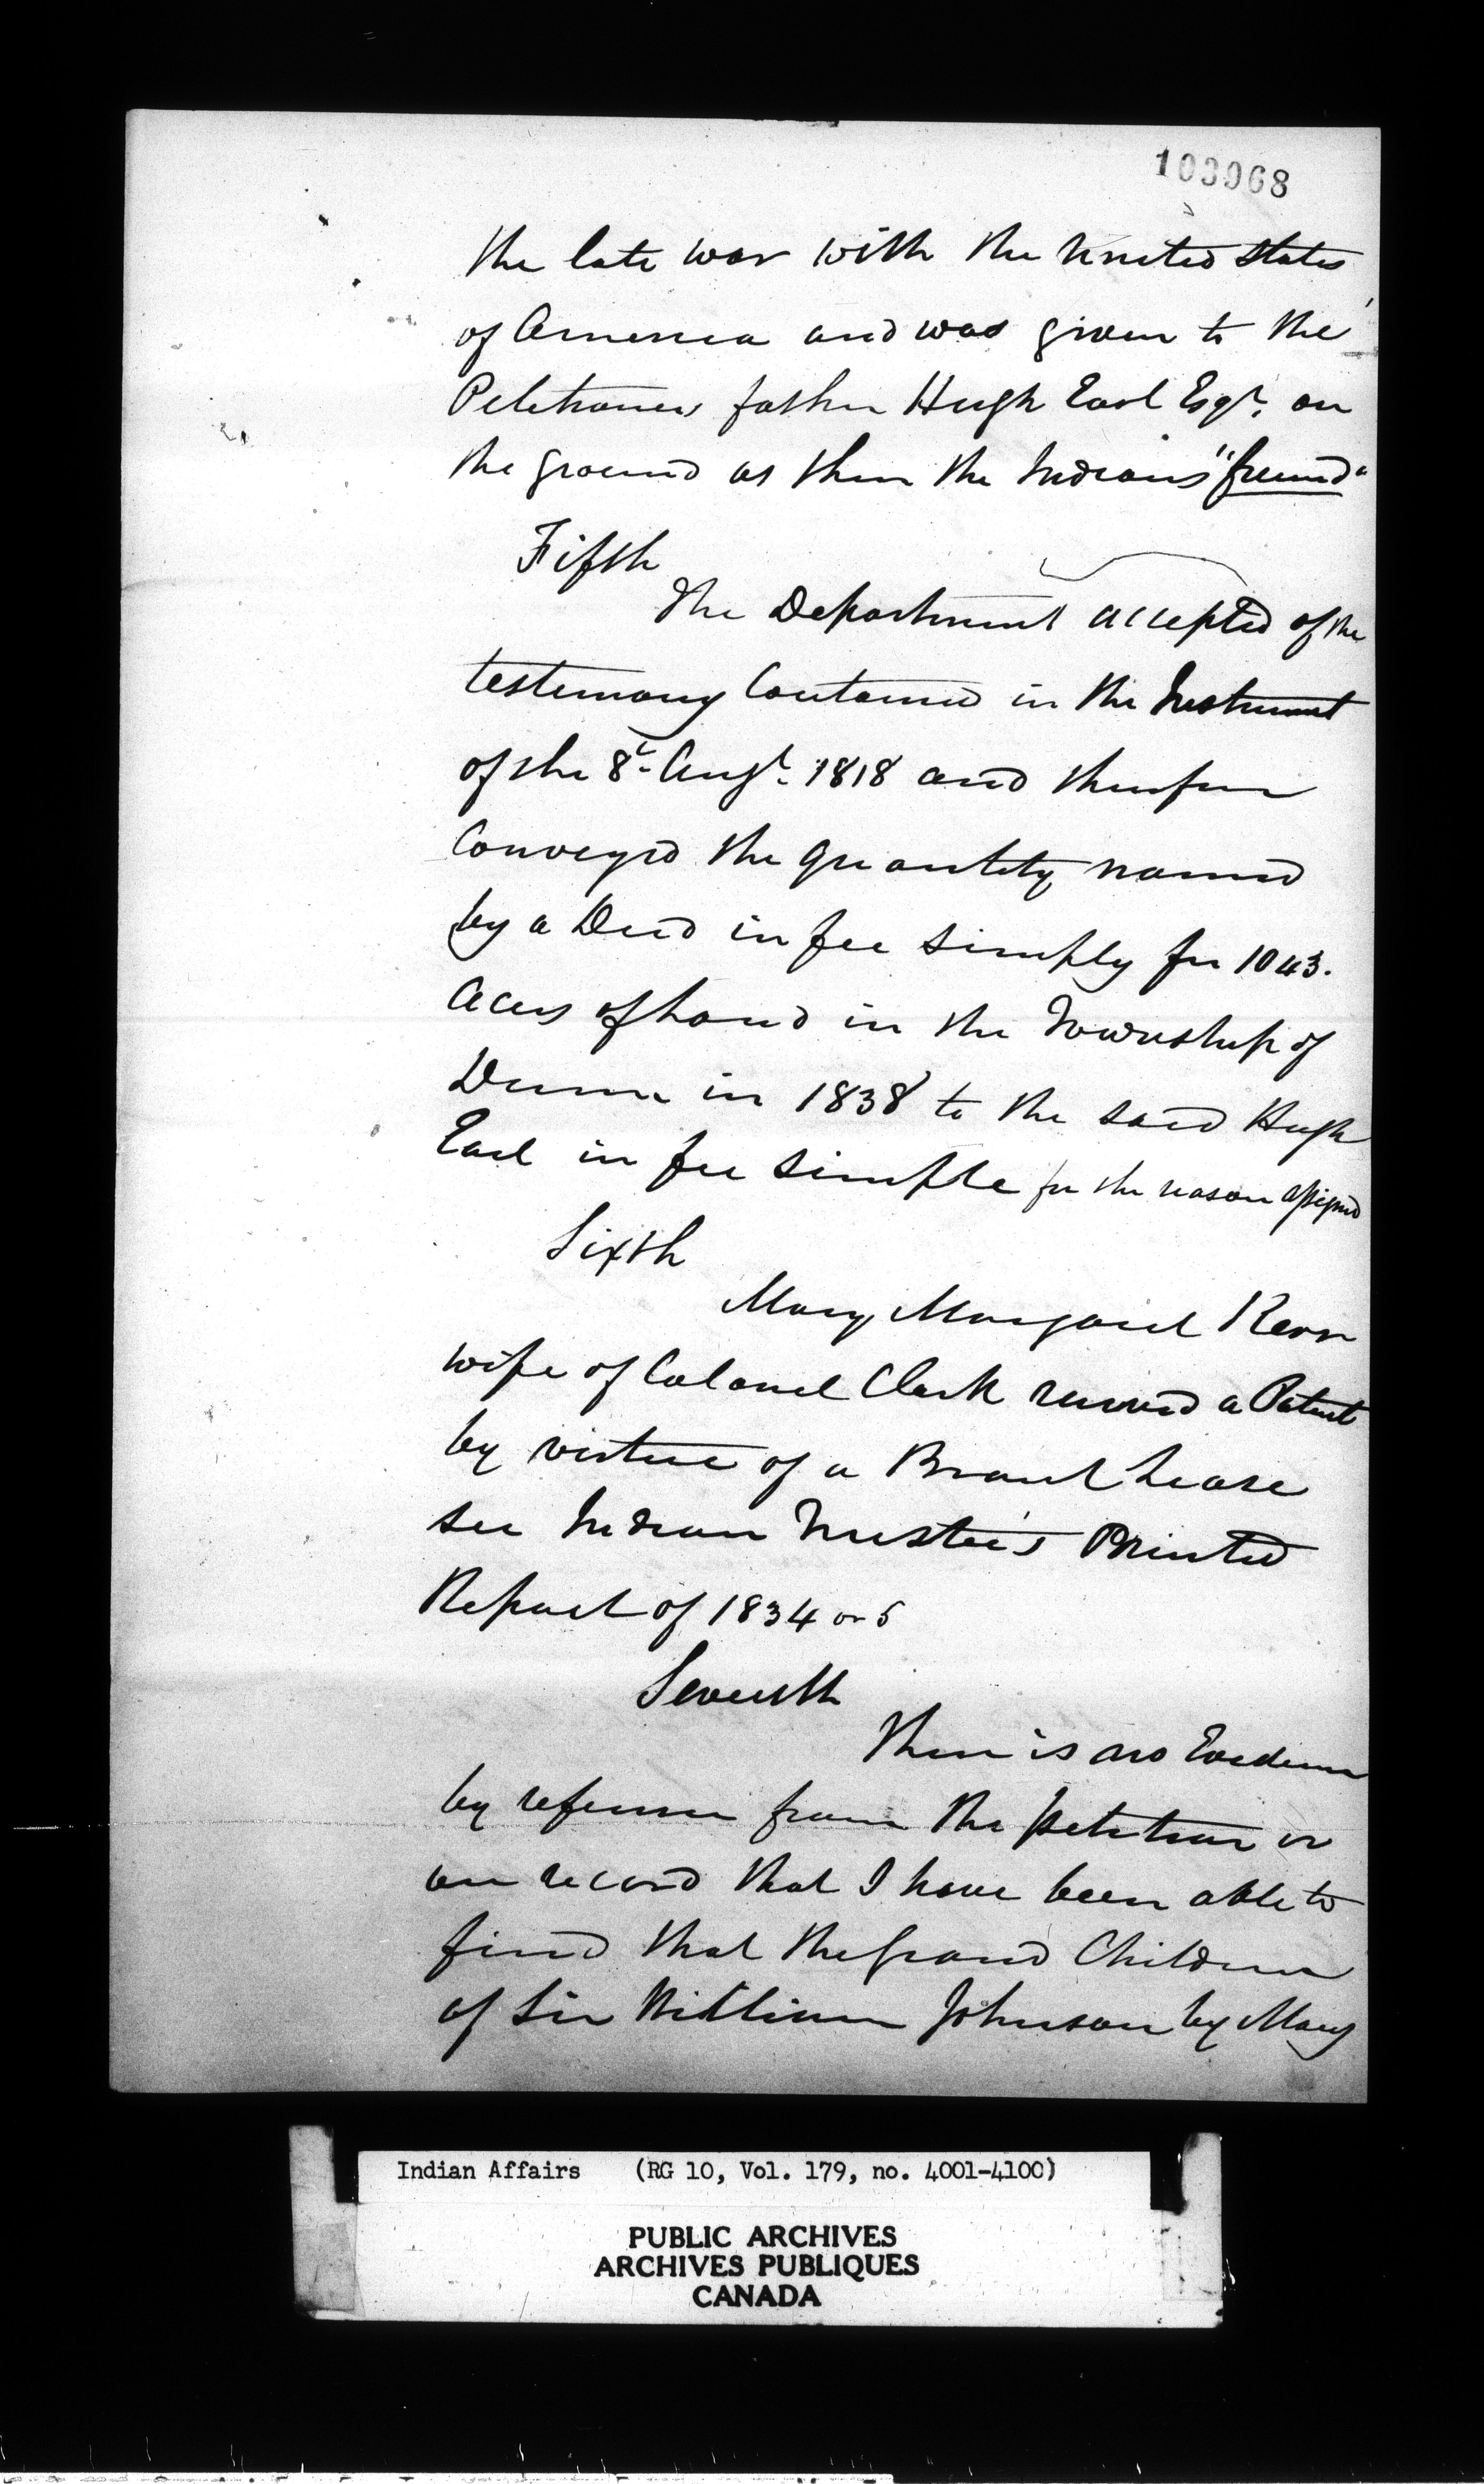 103968
the late war with the United States
of America and was given to the
Petitioners father Hugh Earl Esqr. on
the ground as then the Indians "friend"
Fifth
The Department accepted of the
testimony Contained in the Instrument
of the 8t. Augt. 1818 and therefore
Conveyed the quantity named
by a Deed in fee simply for 1043.
Acres of Land in the Township of
Dunn in 1838 to the said Hugh
Earl in fee simple for the reason assigned
Sixth
Mary Margaret Kerr
wife of Colonel Clark received a Patent
by virtue of a Brant Lease
see Indian Trustee's Printed
Report of 1834 or 5
Seventh
There is no Evidence
by reference from the petition or
on record that I have been able to
find that the Grand Children
of Sir William Johnson by Mary
Indian Affairs (RG 10, Vol. 179, no. 4001-4100)
PUBLIC ARCHIVES
ARCHIVES PUBLIQUES
CANADA